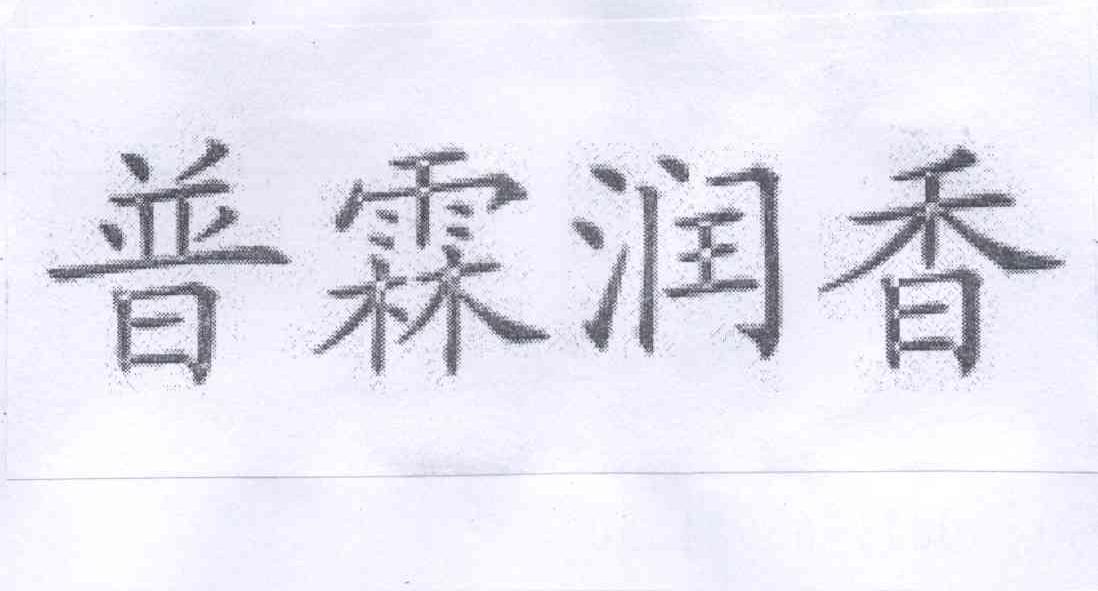 普霖润香